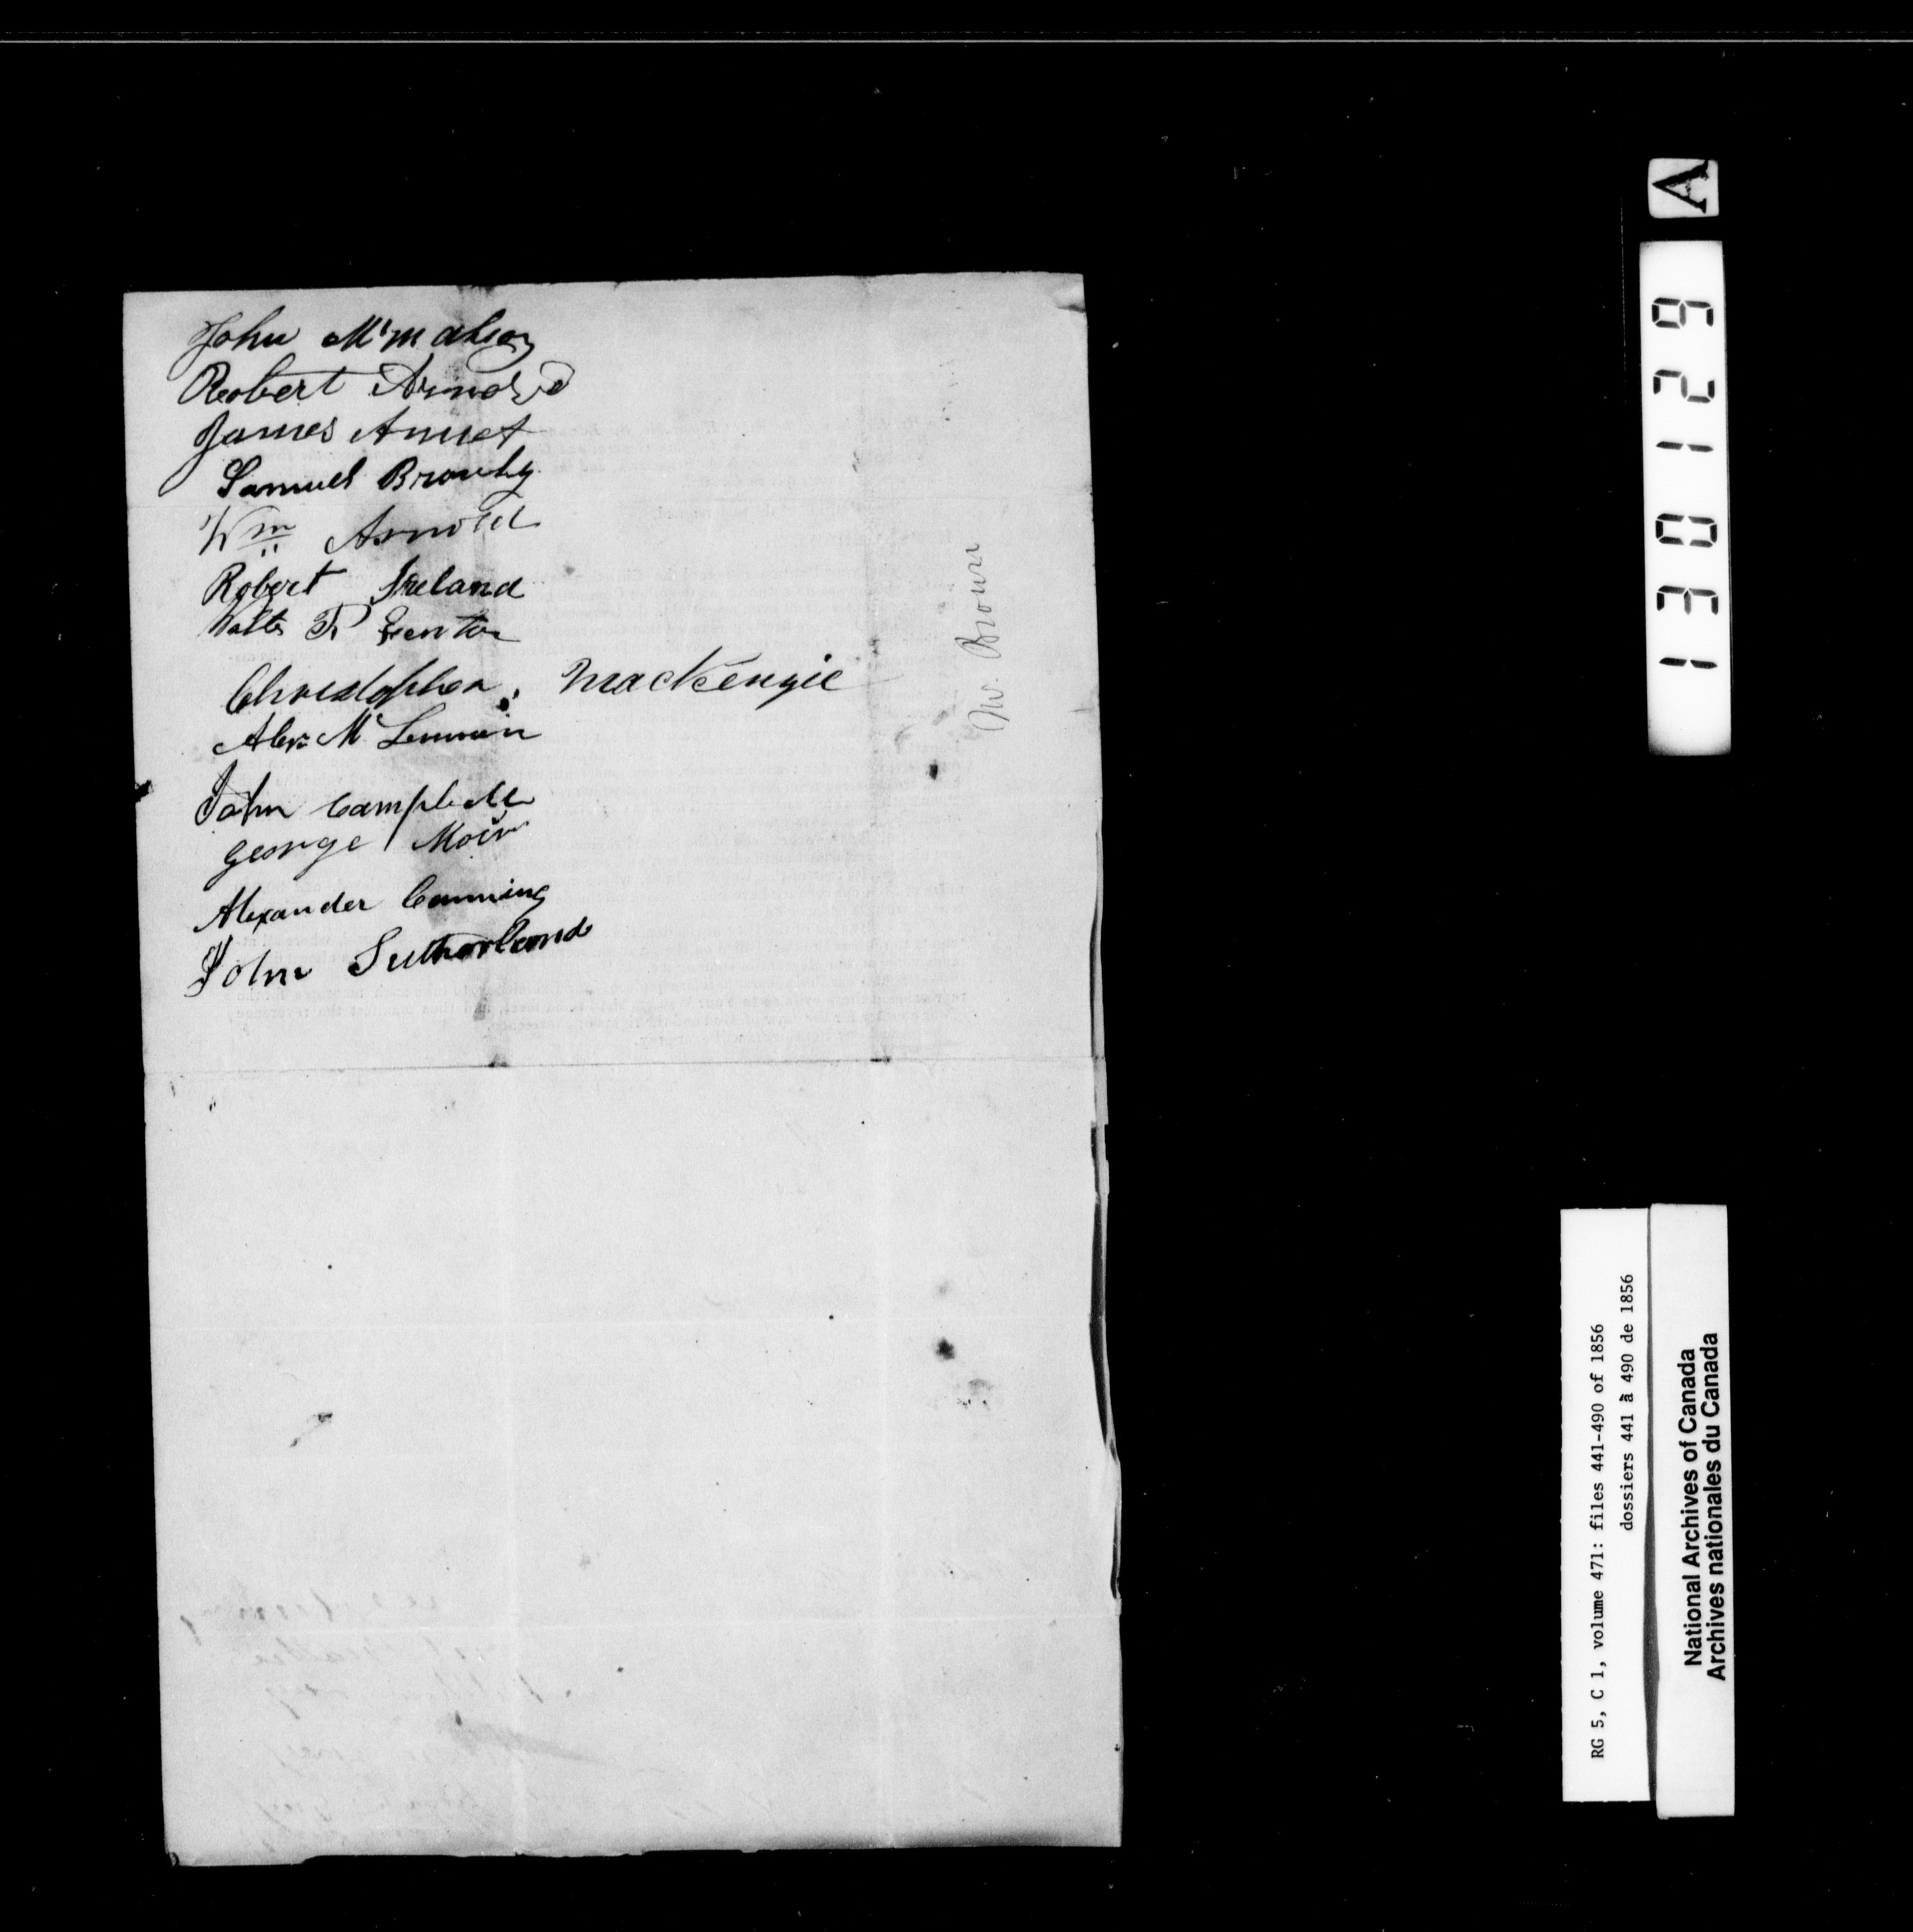 John McMahon
Robert Arnold
James Annet
Samuel Brownly
Wm Arnold
Robert Ireland
Walter R Genton
Christopher Mackenzie
Alexr McLennan
John Campbell
George Moir
Alexander Cumming
John Sutherland
Mr. Brown
A
130129
RG 5, C 1, volume 471: files 441-490 of 1856
dossiers 441 à 490 de 1856
National Archives of Canada
Archives nationales du Canada